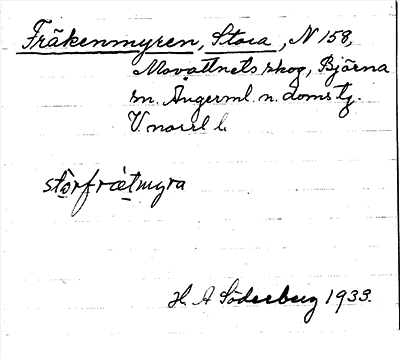 Fräkenmyren, Stora, N 158,
Movattnets skog, Björna
sn. Ångerml. n. doms tg.
V. norrl
stòrfrä̀tmyra
H. A Söderberg 1933.